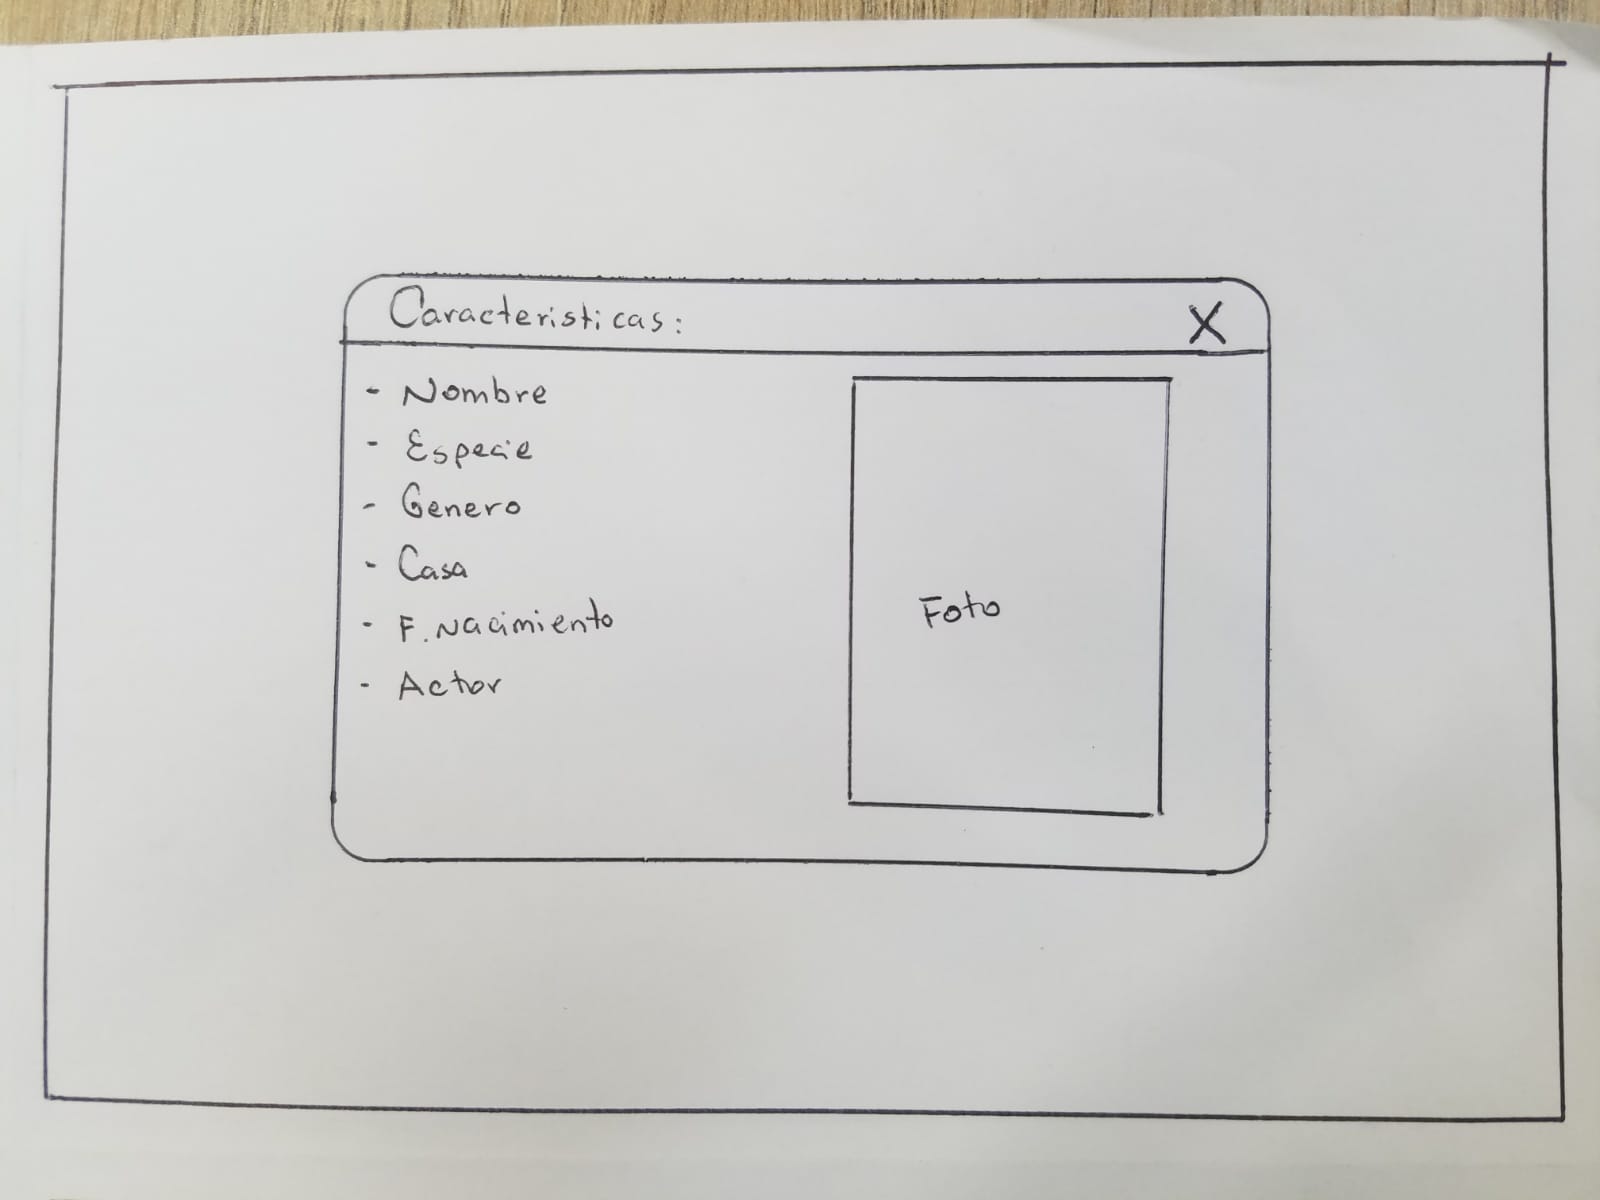 Caracteristicas: X
- Nombre
- Especie
- Genero
- Casa
- F. Nacimiento
- Actor
Foto